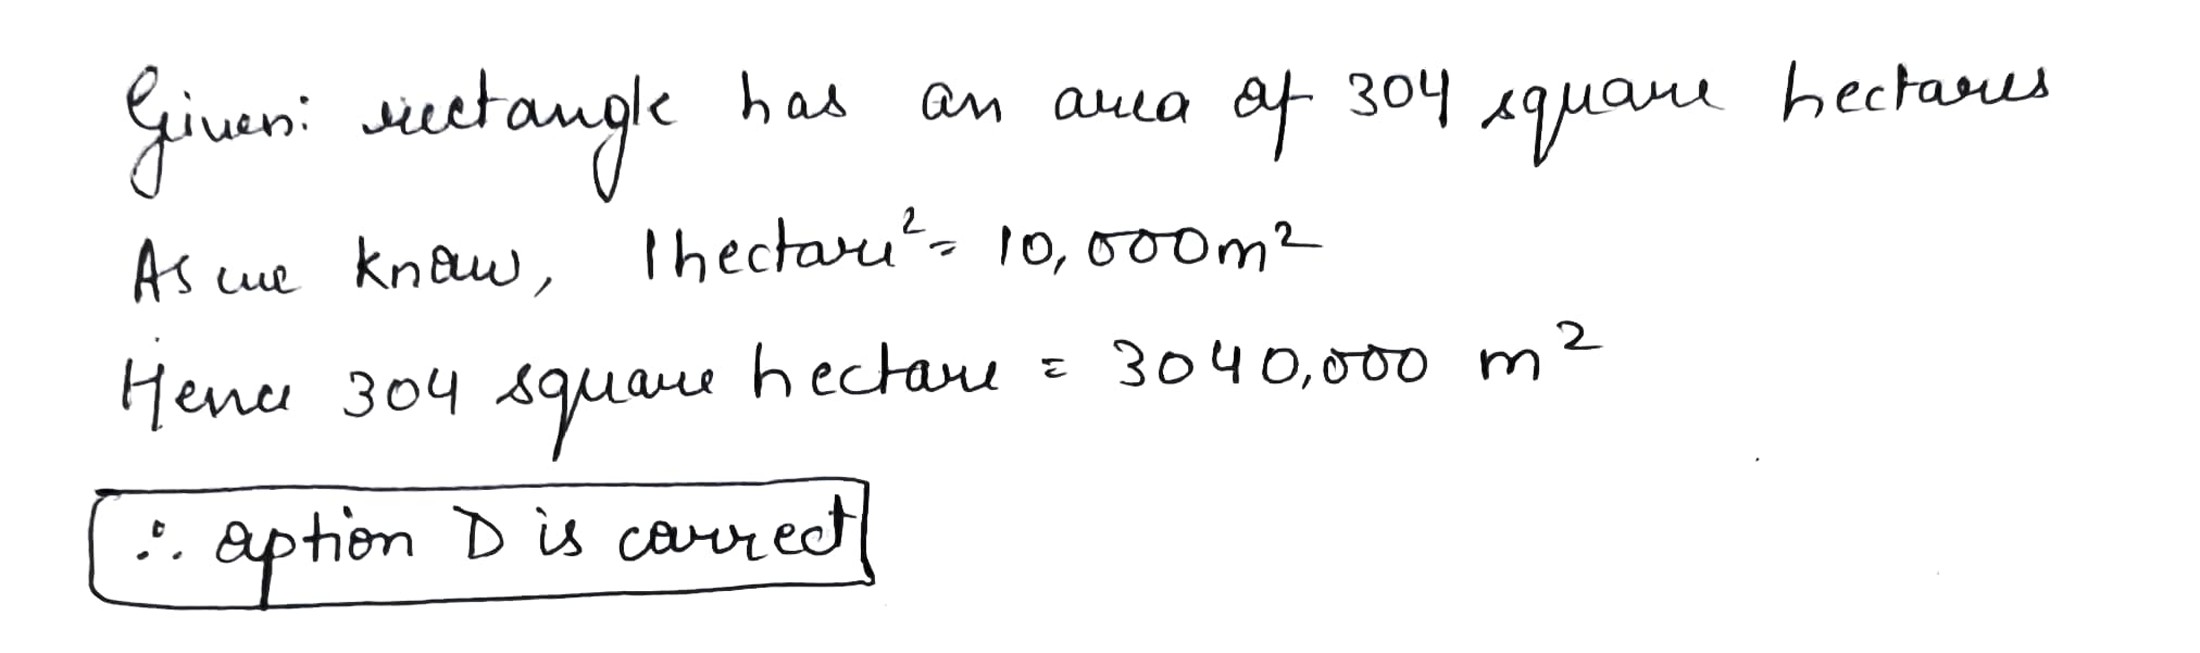 Given: rectangle has an area of 304 square hectares
As we know, 1 hectare² = 10,000m²
Hence 304 square hectare = 3040,000 m²
∴ option D is correct